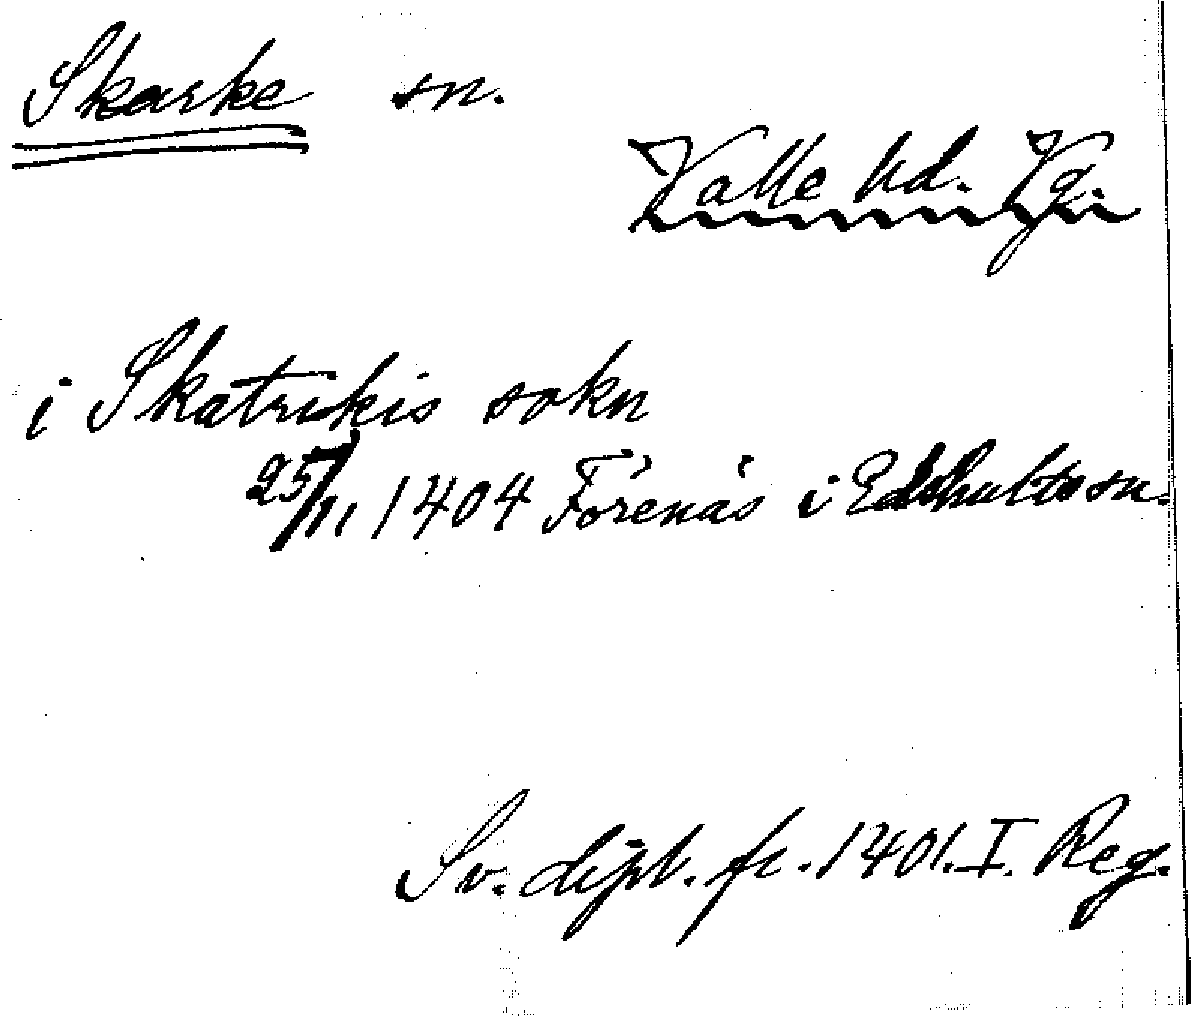 Skarke sn.
Valle hd. Vg.
i Skatrikis sokn
25/11 1404 Förenäs i Edshults sn.
Sv. dipl. fr. 1401. I. Reg.